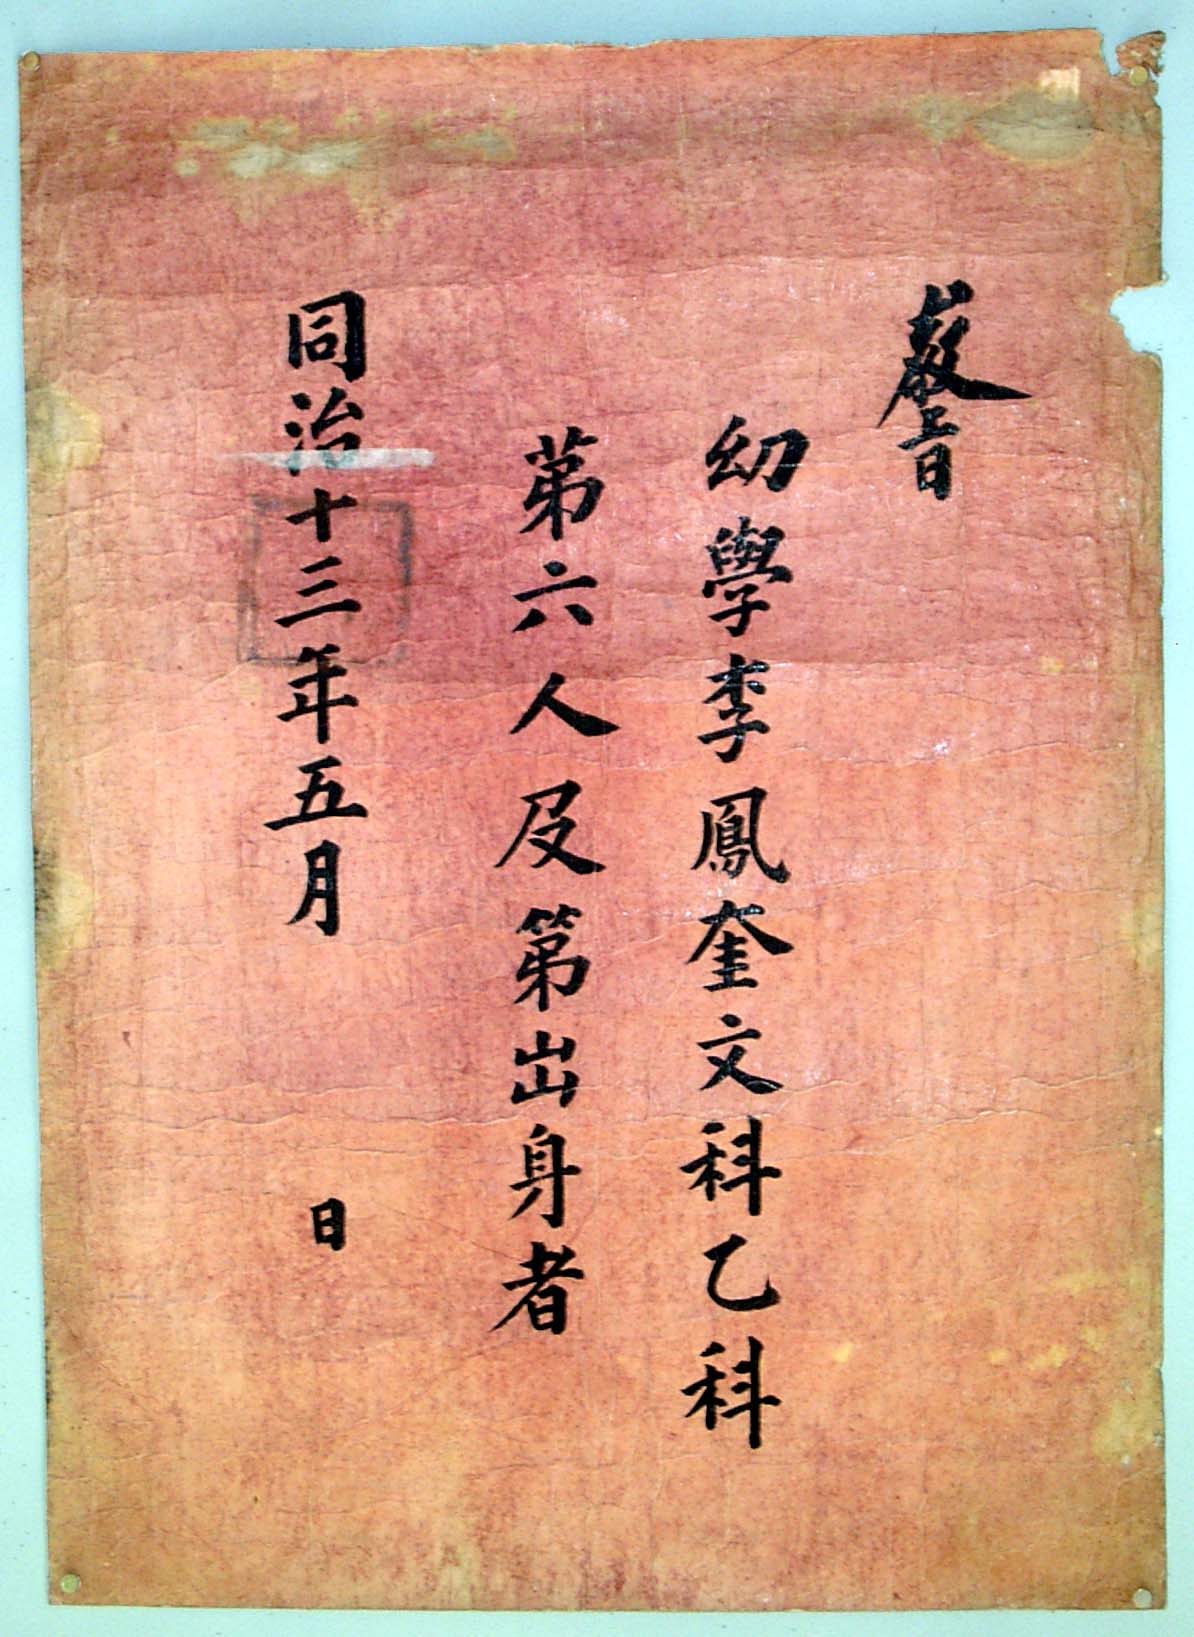 教旨
幼學李鳳奎文科乙科
苐六人及第出身者
同治十三年五月 日